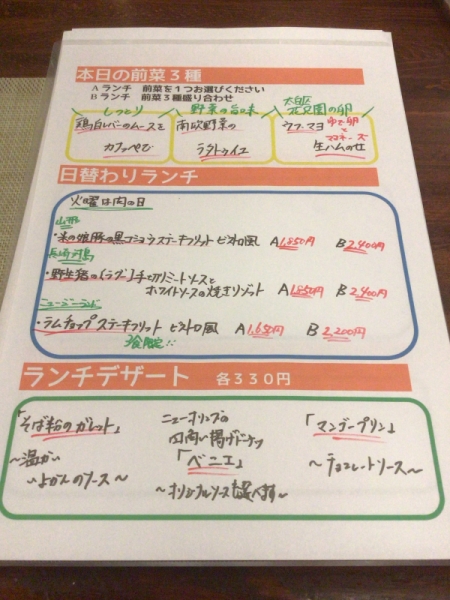 本日の前菜3種
Aランチ 前菜を1つお選びください
Bランチ 前菜3種盛り合わせ
しっとり
鶏白レバーのムースと
カンパーニュ
野菜の旨味
南欧野菜の
ラタトゥイユ
太白区
花兄園の卵
ウフ・マヨ
ゆで卵と
マヨネーズ
生ハムのせ
日替わりランチ
火曜は肉の日
山形
・米の娘豚の黒コショウステーキフリット ビストロ風 A1,850円 B2,400円
長崎対馬
・野生猪の(ラグー)手切りミートソースと
ホワイトソースの焼きリゾット A1,850円 B2,400円
ニュージーランド
・ラムチョップステーキフリット ビストロ風 A1,650円 B2,200円
3食限定!!
ランチデザート 各330円
「そば粉のガレット」
～温かい
いよかんのソース～
ニューオリンズの
四角い揚げドーナツ
「ベニエ」
～オリジナルソース
「マンゴープリン」
～チョコレートソース～